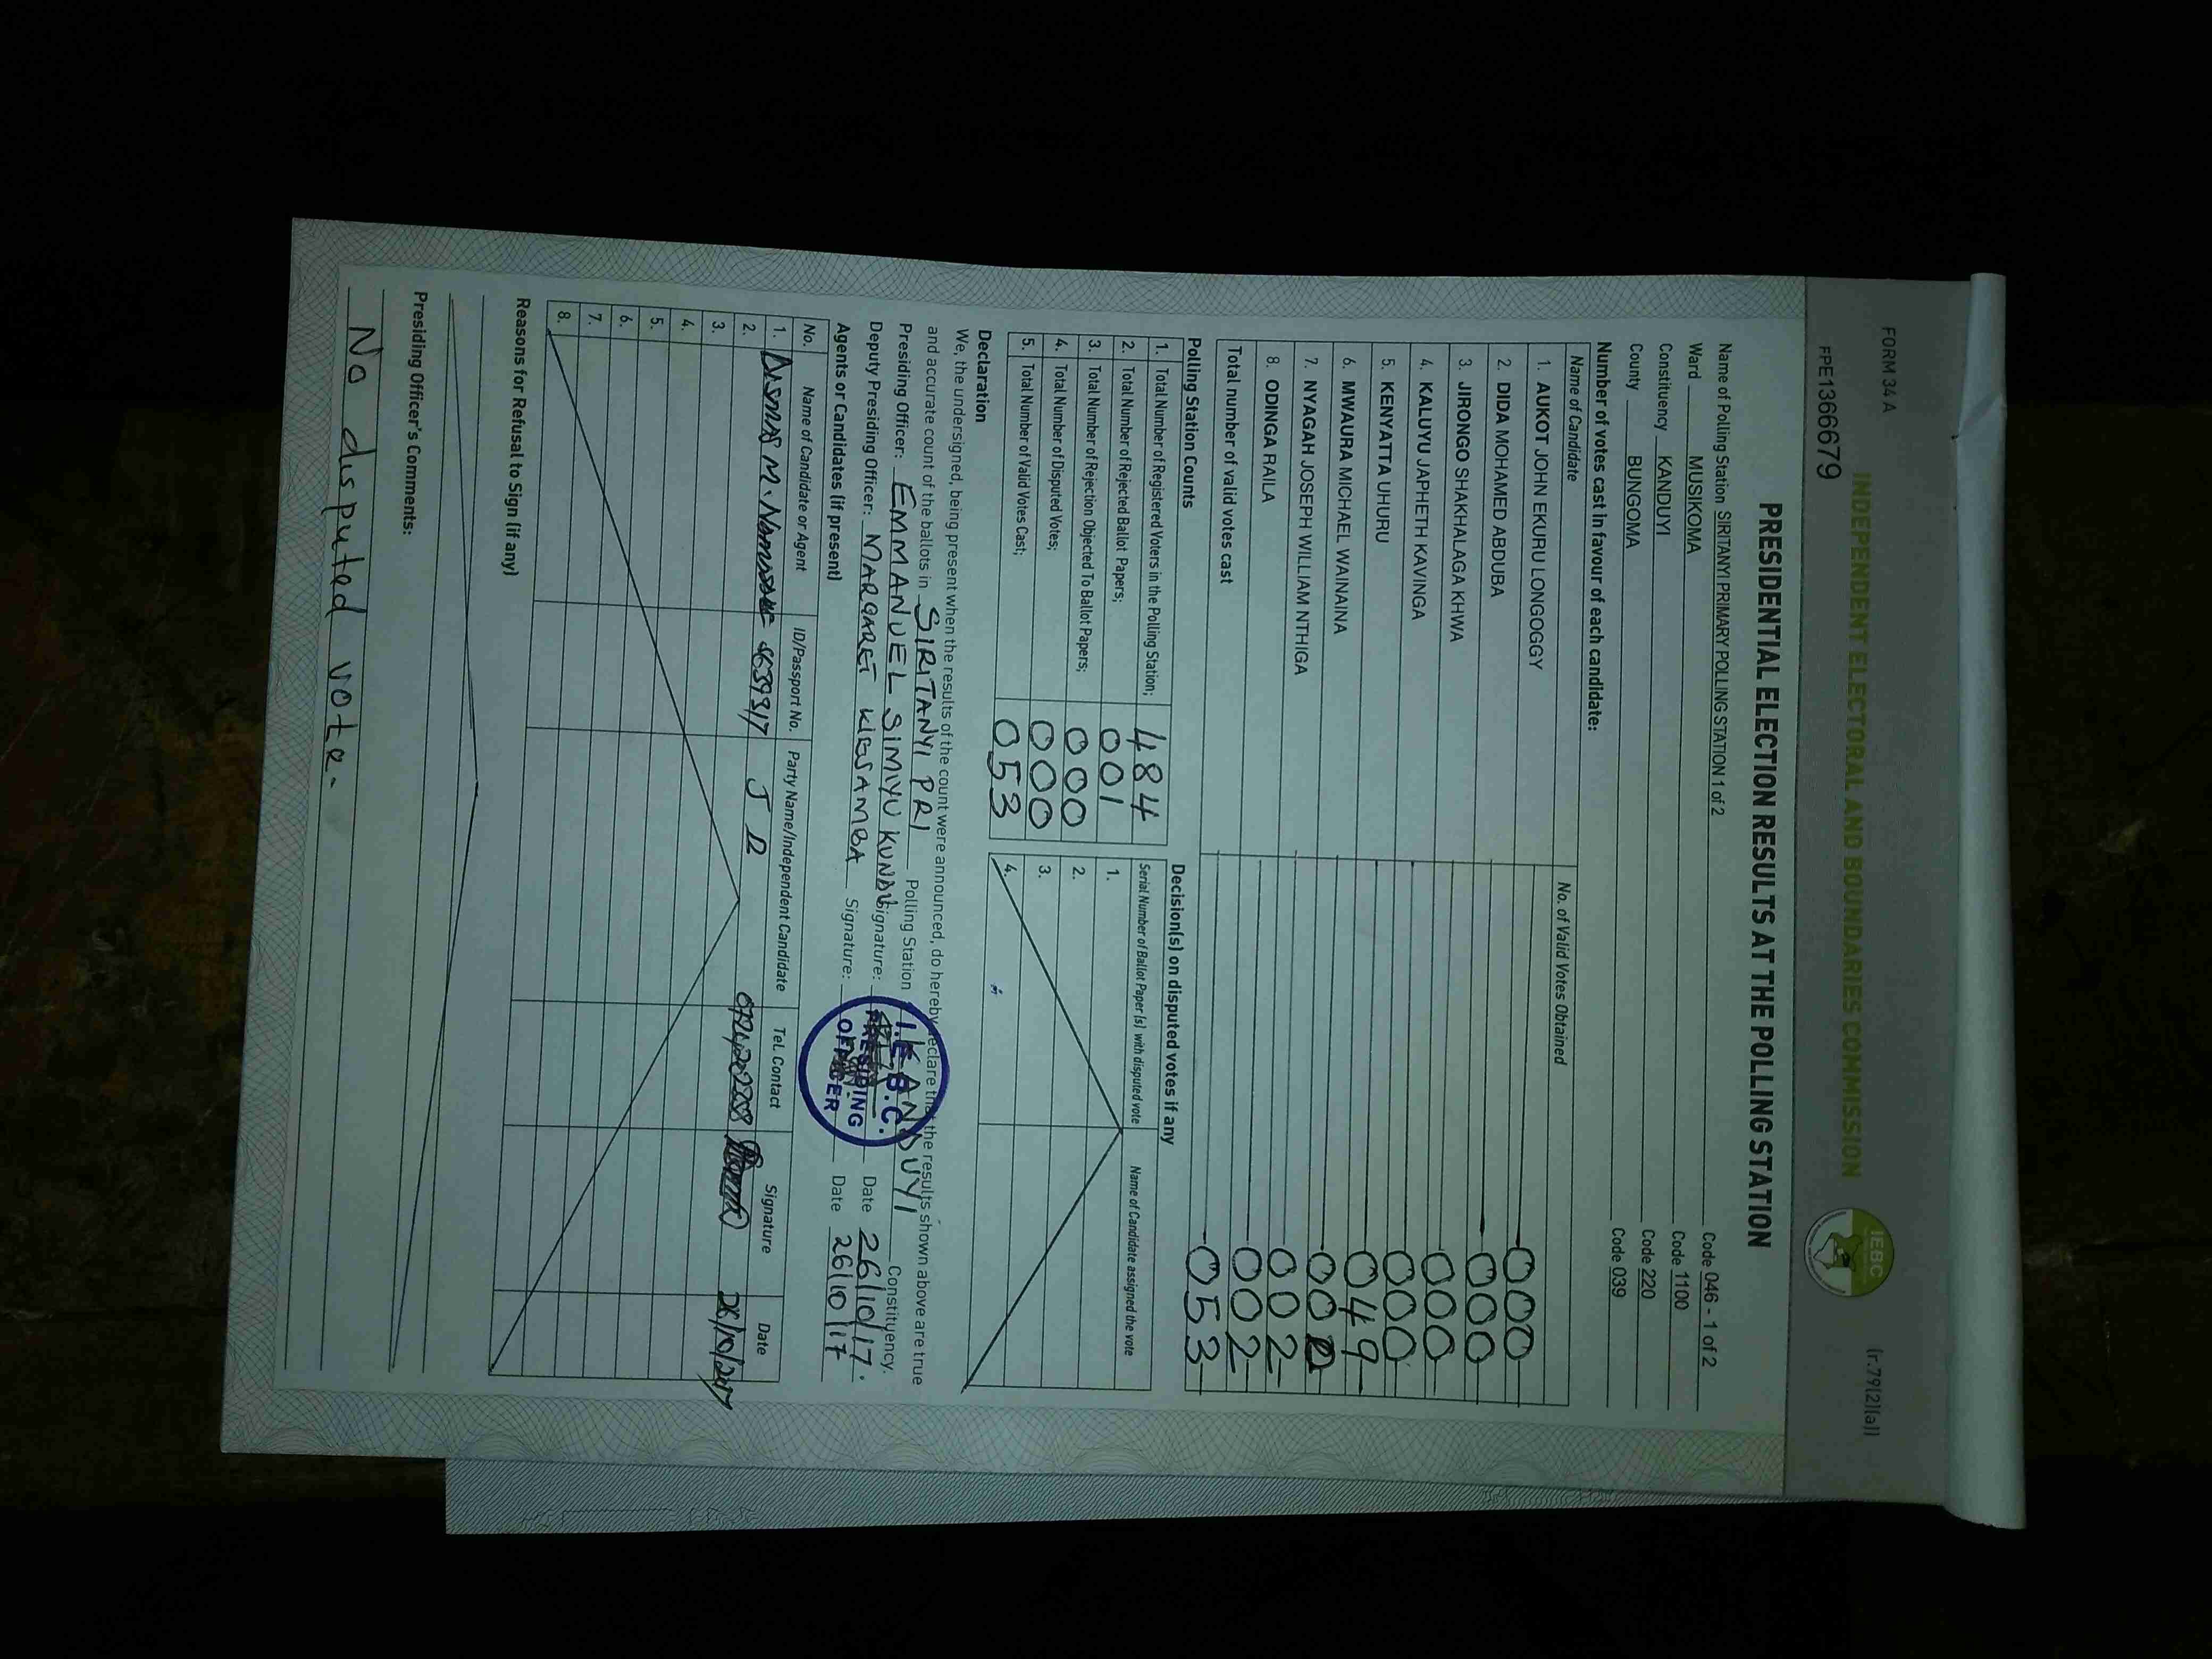 FORM 34 A (r.79(2)(a))
INDEPENDENT ELECTORAL AND BOUNDARIES COMMISSION
IEBC
FPE1366679
PRESIDENTIAL ELECTION RESULTS AT THE POLLING STATION
Name of Polling Station SIRITANYI PRIMARY POLLING STATION 1 of 2 Code 046 - 1 of 2
Ward MUSIKOMA Code 1100
Constituency KANDUYI Code 220
County BUNGOMA Code 039
Number of votes cast in favour of each candidate:
Name of Candidate No. of Valid Votes Obtained
1. AUKOT JOHN EKURU LONGOGGY 000
2. DIDA MOHAMED ABDUBA 000
3. JIRONGO SHAKHALAGA KHWA 000
4. KALUYU JAPHETH KAVINGA 000
5. KENYATTA UHURU 049
6. MWAURA MICHAEL WAINAINA 000
7. NYAGAH JOSEPH WILLIAM NTHIGA 002
8. ODINGA RAILA 002
Total number of valid votes cast 053
Polling Station Counts
1. Total Number of Registered Voters in the Polling Station; 484
2. Total Number of Rejected Ballot Papers; 001
3. Total Number of Rejection Objected To Ballot Papers; 000
4. Total Number of Disputed Votes; 000
5. Total Number of Valid Votes Cast; 053
Decision(s) on disputed votes if any
Serial Number of Ballot Paper (s) with disputed vote Name of Candidate assigned the vote
1.
2.
3.
4.
Declaration
We, the undersigned, being present when the results of the count were announced, do hereby declare that the results shown above are true
and accurate count of the ballots in SIRITANYI PRI Polling Station KANDUYI Constituency.
Presiding Officer: EMMANUEL SIMIYU KUNDU Signature: Date 26/10/17.
Deputy Presiding Officer: MARGARET KIBSAMBA Signature: Date 26/10/17
I.E.B.C.
PRESIDING
OFFICER
Agents or Candidates (if present)
No. Name of Candidate or Agent ID/Passport No. Party Name/Independent Candidate Tel. Contact Signature Date
1. DISMAS M. 4639317 J P 26/10/2017
2.
3.
4.
5.
6.
7.
8.
Reasons for Refusal to Sign (if any)
Presiding Officer's Comments:
No disputed vote.